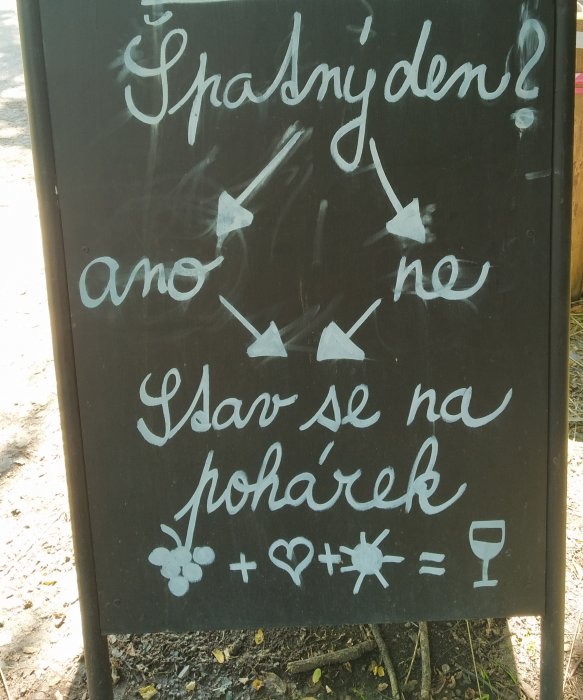 Špatný den?
ano ne
Stav se na
pohárek
+ + =